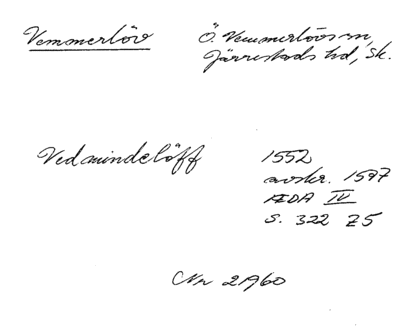 Vemmerlöv
Ö. Vemmerlövs sn,
Järrestads hd, Sk.
Vedmindelöff
1552
avskr. 1597
ÆDA IV
s. 322 Z5
Nr 21960